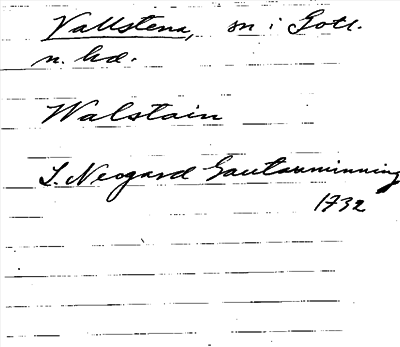 Vallstena, sn i Gotl.
n. hd.
Walstain
L. Neogard Gautauminning
1732